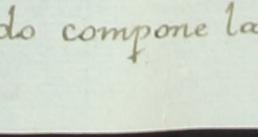 do compone la